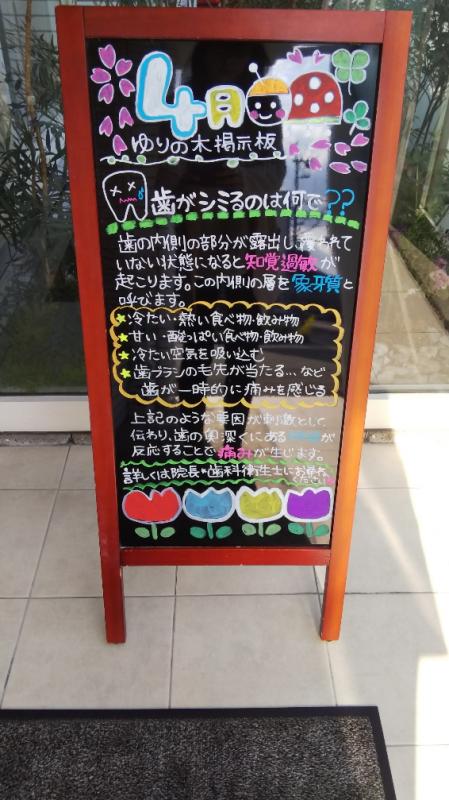 4月
ゆりの木掲示板
歯がシミるのは何で??
歯の内側の部分が露出し、覆われて
いない状態になると知覚過敏が
起こります。この内側の層を象牙質と
呼びます。
★冷たい・熱い食べ物・飲み物
★甘い・酸っぱい食べ物・飲み物
★冷たい空気を吸い込む
★歯ブラシの毛先が当たる…など
歯が一時的に痛みを感じる
上記のような要因が刺激として
伝わり、歯の奥深くにある が
反応することで痛みが生じます。
詳しくは院長・歯科衛生士にお尋ね
ください